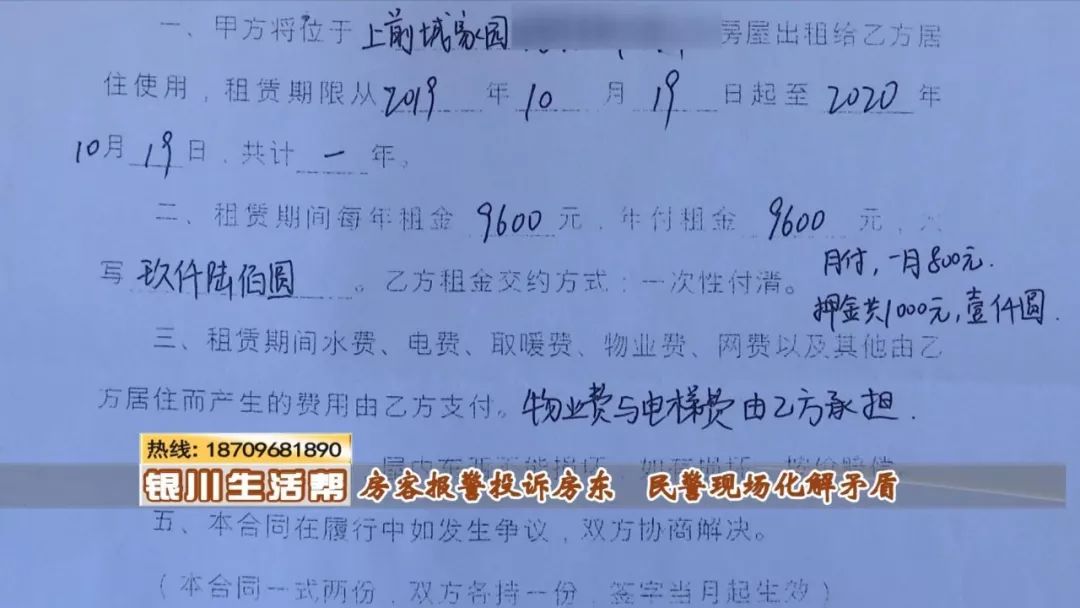 一、甲方将位于上前城家园 房屋出租给乙方居
住使用，租赁期限从2019年10月19日起至2020年
10月19日，共计一年，
二、租赁期间每年租金9600元，年付租金9600元，大
写玖仟陆佰圆。乙方租金交约方式：一次性付清。
月付，一月800元.
押金共1000元，壹仟圆.
三、租赁期间水费、电费、取暖费、物业费、网费以及其他由乙
方居住而产生的费用由乙方支付。物业费与电梯费由乙方承担.
热线: 18709681890
银川生活帮 房客报警投诉房东 民警现场化解矛盾
五、本合同在履行中如发生争议，双方协商解决。
（本合同一式两份，双方各持一份，签字当月起生效）